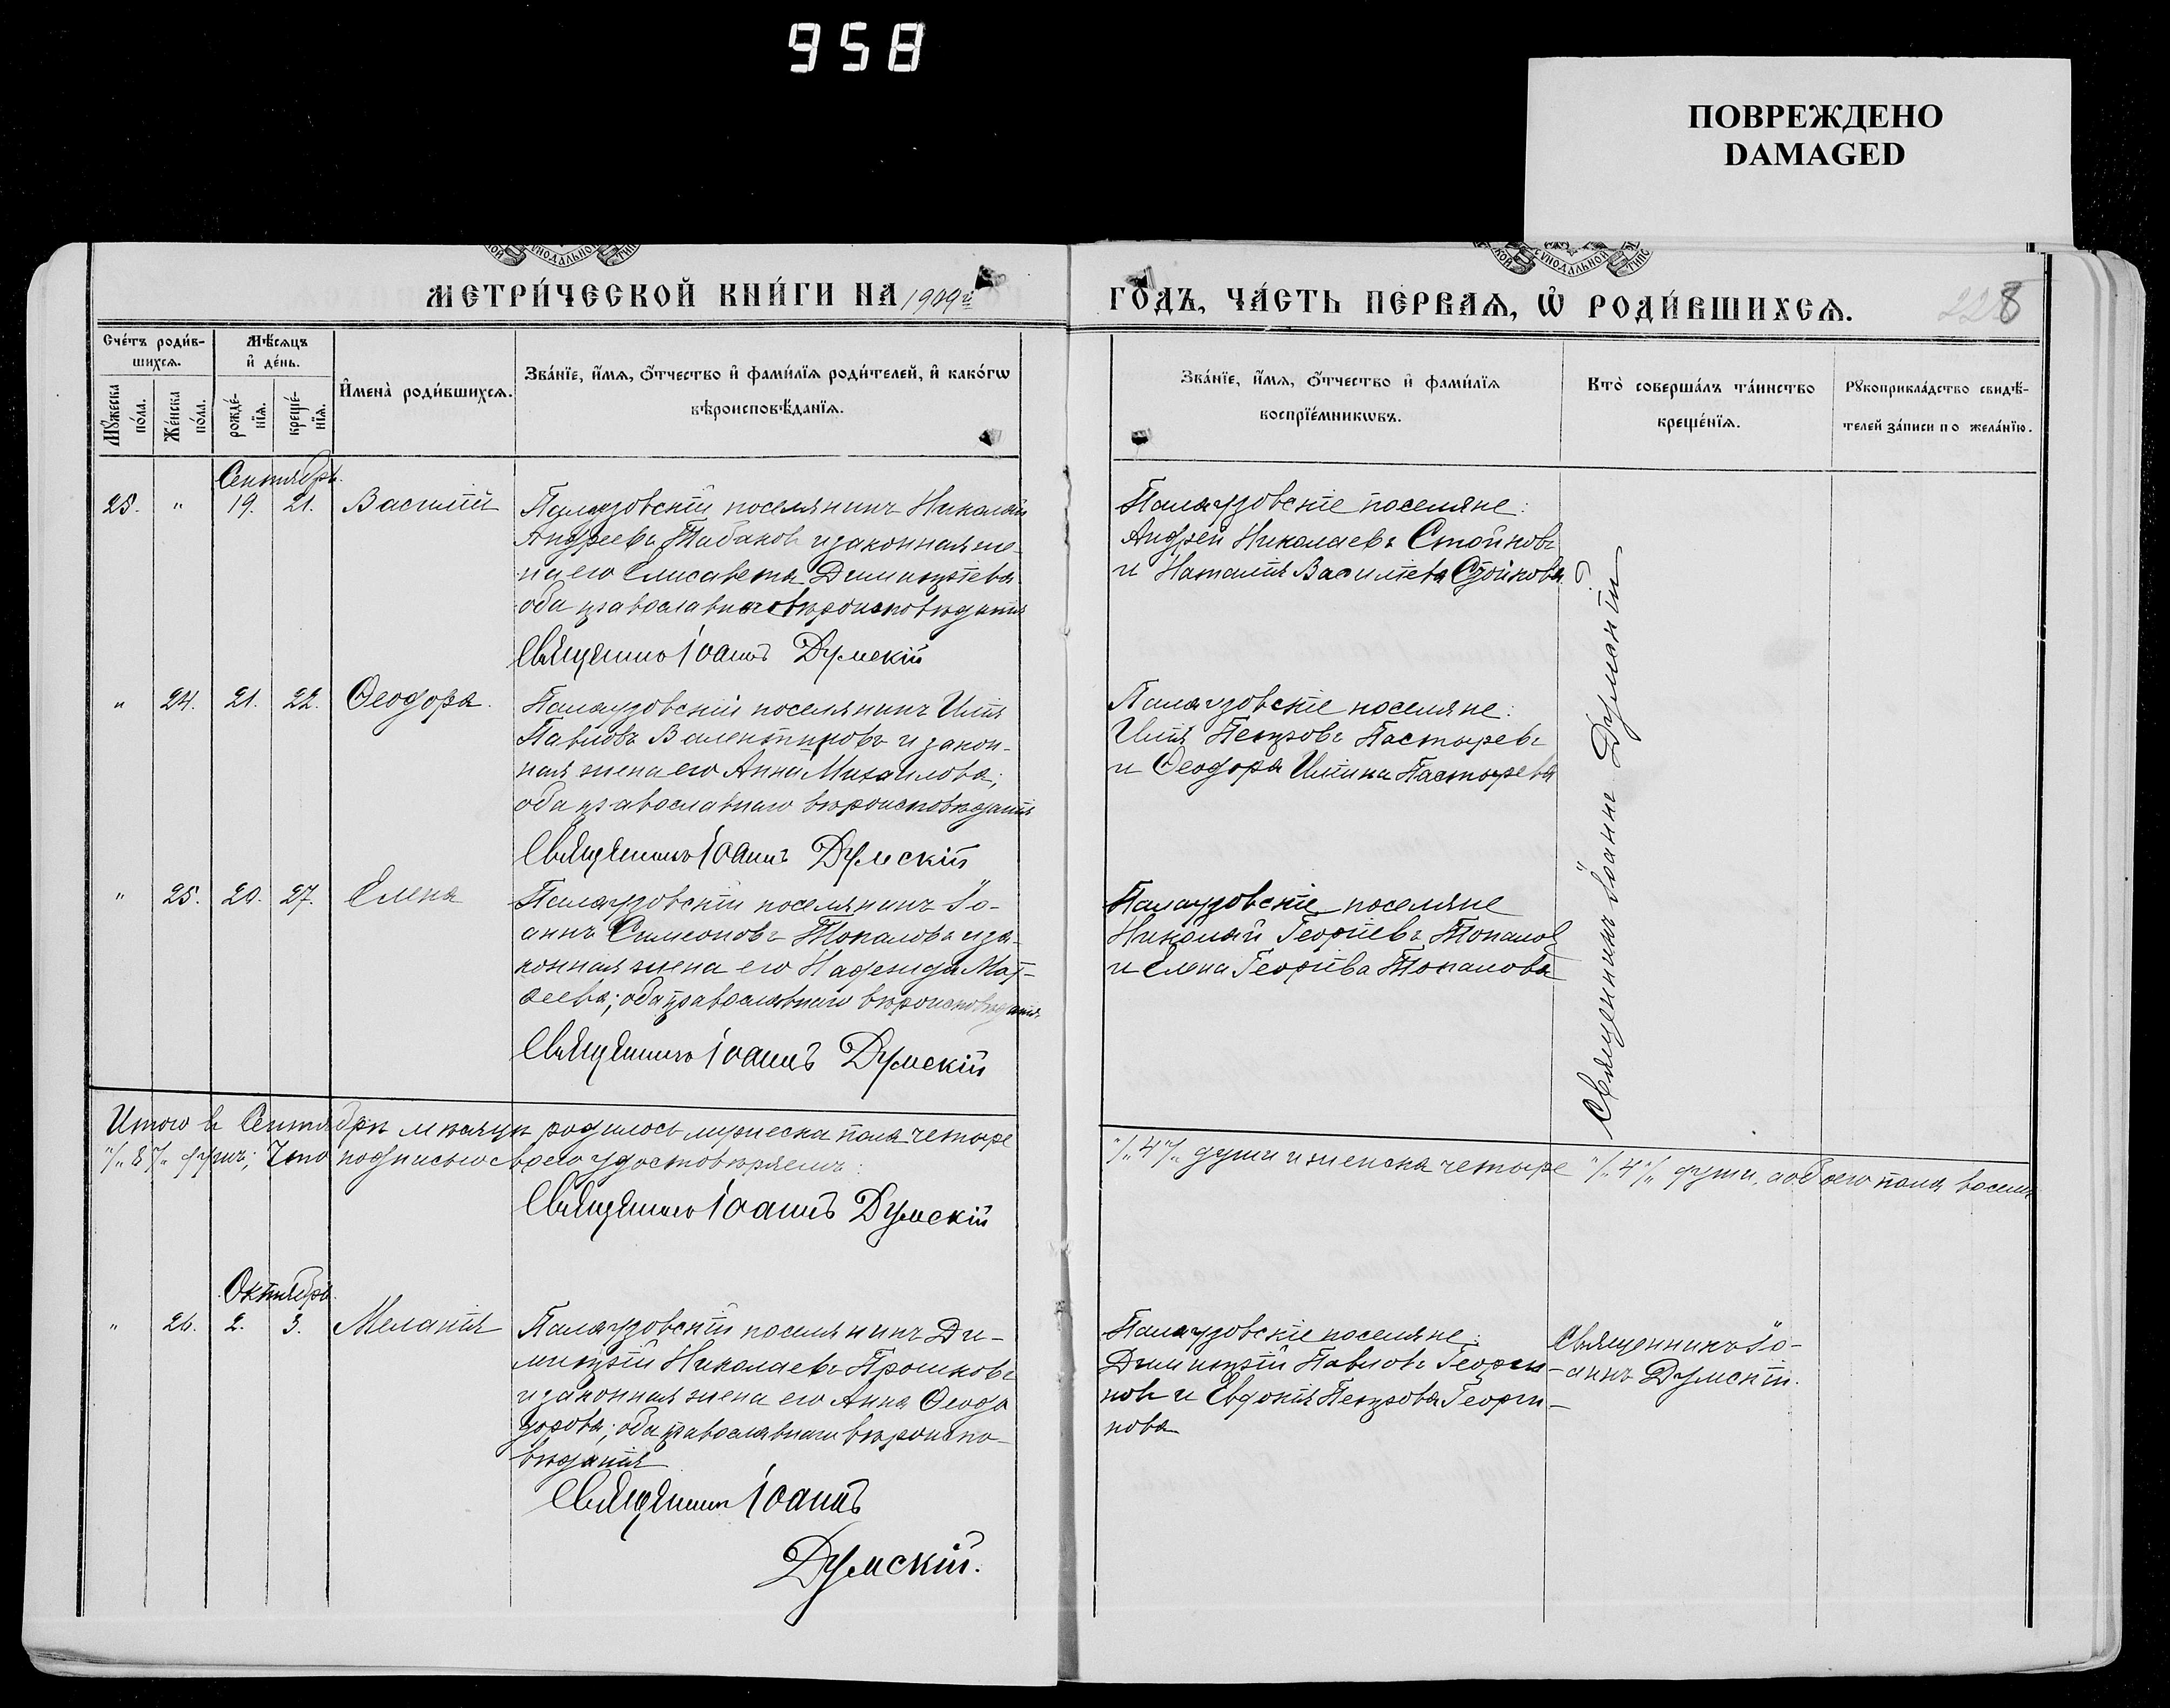 958
ПОВРЕЖДЕНО
DAMAGED
МЕТРИ́ЧЕСКОЙ КНИ́ГИ НА 1909й
ГО́ДЪ, ЧА́СТЬ ПЕ́РВАѦ, Ѡ҆ РОДИ́ВШИХСѦ.
228
Сче́тъ роди́в-
шихсѧ.
Мѣ́сѧцъ
и҆ де́нь.
Мꙋ́жеска
по́ла.
Же́нска
по́ла.
рожде́-
нїѧ.
креще́-
нїѧ.
И҆мена̀ роди́вшихсѧ.
Зва́нїе, и҆́мѧ, ѻ҆́тчество и҆ фами́лїѧ роди́телей, и҆ како́гѡ
вѣроисповѣ́данїѧ.
Зва́нїе, и҆́мѧ, ѻ҆́тчество и҆ фами́лїѧ
воспрїе́мникѡвъ.
Кто̀ соверша́лъ та́инство
креще́нїѧ.
Рꙋкоприкла́дство свидѣ́-
телей за́писи по жела́нїю.
Сентябрь.
25. " 19. 21. Василій
Палаузовскій поселянинъ Николай
Андреевъ Табаковъ и законная же-
на его Елисавета Димитріева
оба православнаго вѣроисповѣданія
Священникъ Іоаннъ Думскій
Палаузовскіе поселяне:
Андрей Николаевъ Стойковъ
и Наталія Василіева Стойкова
" 24. 21. 22. Ѳеодора.
Палаузовскій поселянинъ Илія
Павловъ Валентировъ и закон-
ная жена его Анна Михаилова;
оба православнаго вѣроисповѣданія
Священникъ Іоаннъ Думскій
Палаузовскіе поселяне:
Илія Петровъ Пастыревъ
и Ѳеодора Иліина Пастырева
" 25. 20. 27. Елена
Палаузовскій поселянинъ Іо-
аннъ Симеоновъ Топаловъ и за-
конная жена его Надежда Мат-
ѳеева; оба православнаго вѣроисповѣданія
Священникъ Іоаннъ Думскій
Палаузовскіе поселяне
Николай Георгіевъ Топалов
и Елена Георгіева Топалова
Священникъ Іоаннъ Думскій
Итого въ Сентябрѣ мѣсяцѣ родилось мужеска пола четыре
"/„ 4 "/„ души и женска четыре "/„ 4 "/„ души, а обоего пола восемь
"/„ 8 "/„ душъ; Что подписью своею удостовѣряемъ:
Священникъ Іоаннъ Думскій
Октябрь.
" 26. 2. 3. Меланія
Палаузовскій поселянинъ Ди-
митрій Николаевъ Прошковъ
и законная жена его Анна Ѳеодо
дорова; оба православнаго вѣроиспо-
вѣданія
Священникъ Іоаннъ
Думскій.
Палаузовскіе поселяне:
Димитрій Павловъ Георги-
новъ и Евдокія Петрова Георги-
нова
Священникъ Іо-
аннъ Думскій.